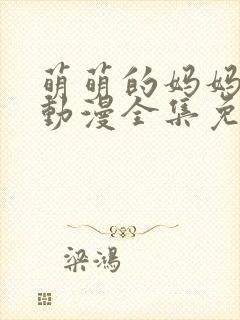 萌萌的妈妈
動漫全集免
梁鴻